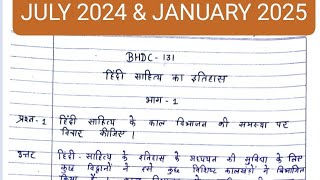 JULY 2024 & JANUARY 2025
BHDC-131
हिंदी साहित्य का इतिहास
भाग-1
प्रश्न-1 हिंदी साहित्य के काल विभाजन की समस्या पर
विचार कीजिए।
उत्तर हिंदी-साहित्य के इतिहास के अध्ययन की सुविधा के लिए
कुछ विद्वानों ने इसे कुछ विशिष्ट कालखंडों में विभाजित